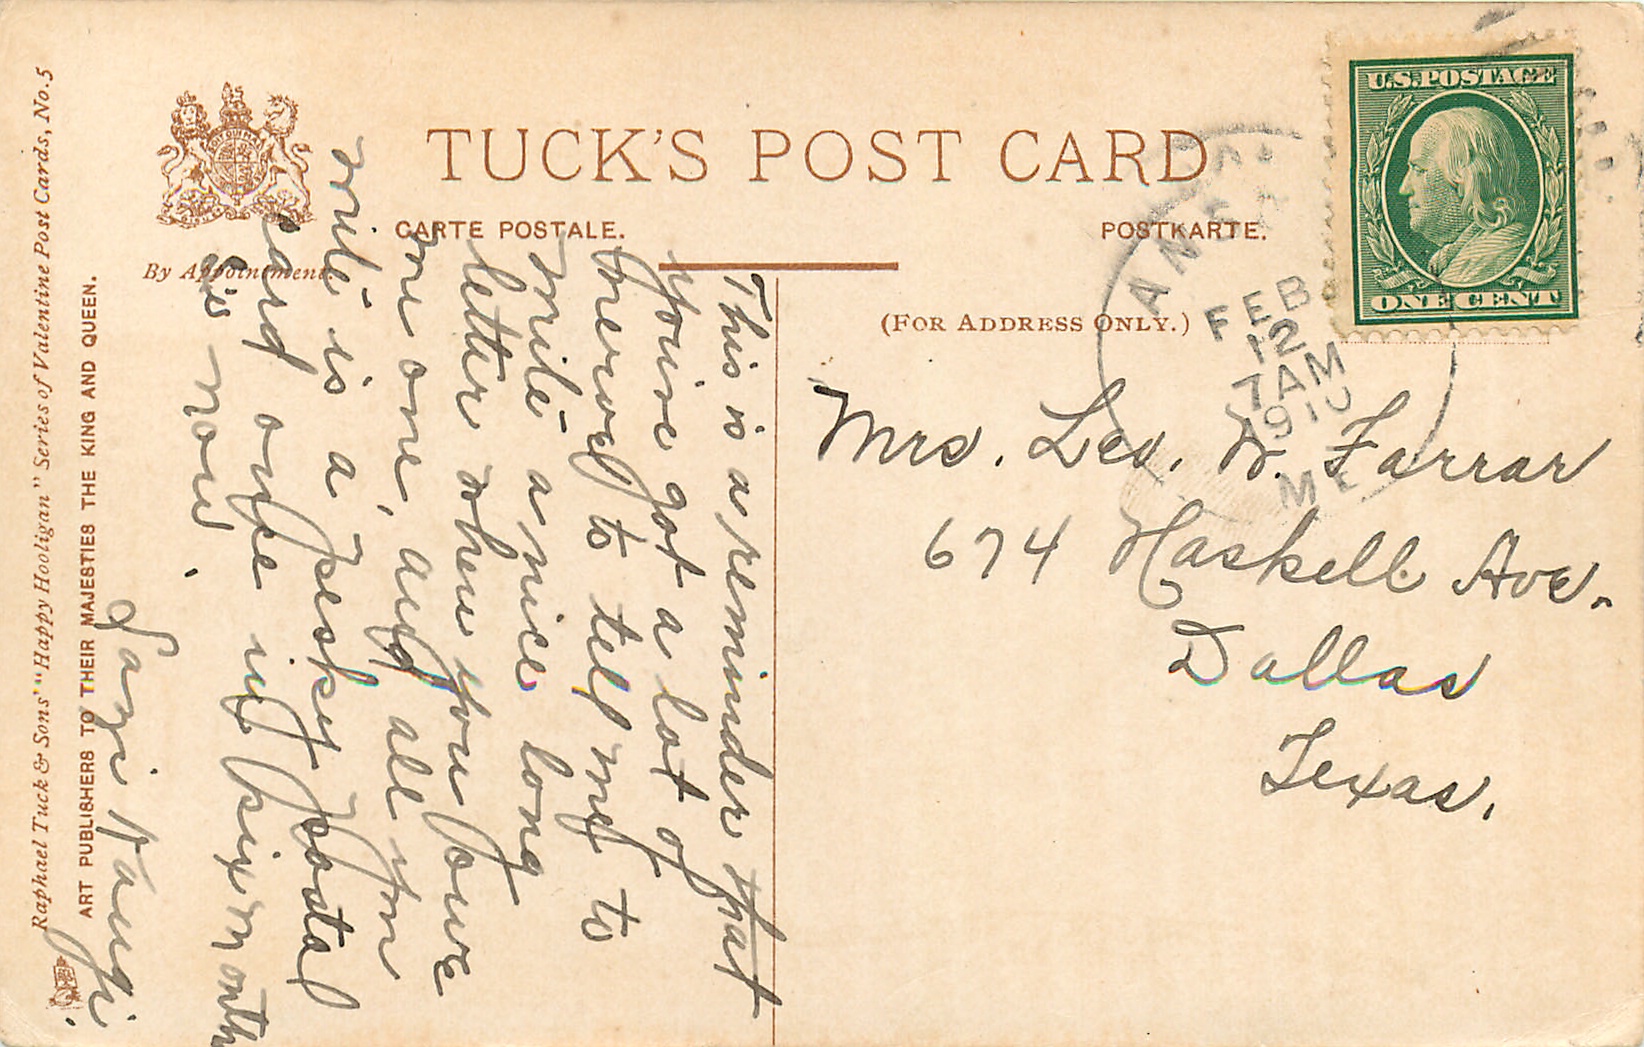 TUCK'S POST CARD
CARTE POSTALE.
POSTKARTE.
By Appointment.
(FOR ADDRESS ONLY.)
U.S. POSTAGE
ONE CENT
FEB
12
7 AM
1910
ME
Mrs. Leo. W. Farrar
674 Haskell Ave.
Dallas
Texas.
This is a reminder that
you've got a lot of
nerve to tell me to
write a nice long
letter when you owe
me one, and all you
write is a pesky postal
card once in six months
Raphael Tuck & Sons' "Happy Hooligan" Series of Valentine Post Cards, No. 5
ART PUBLISHERS TO THEIR MAJESTIES THE KING AND QUEEN.